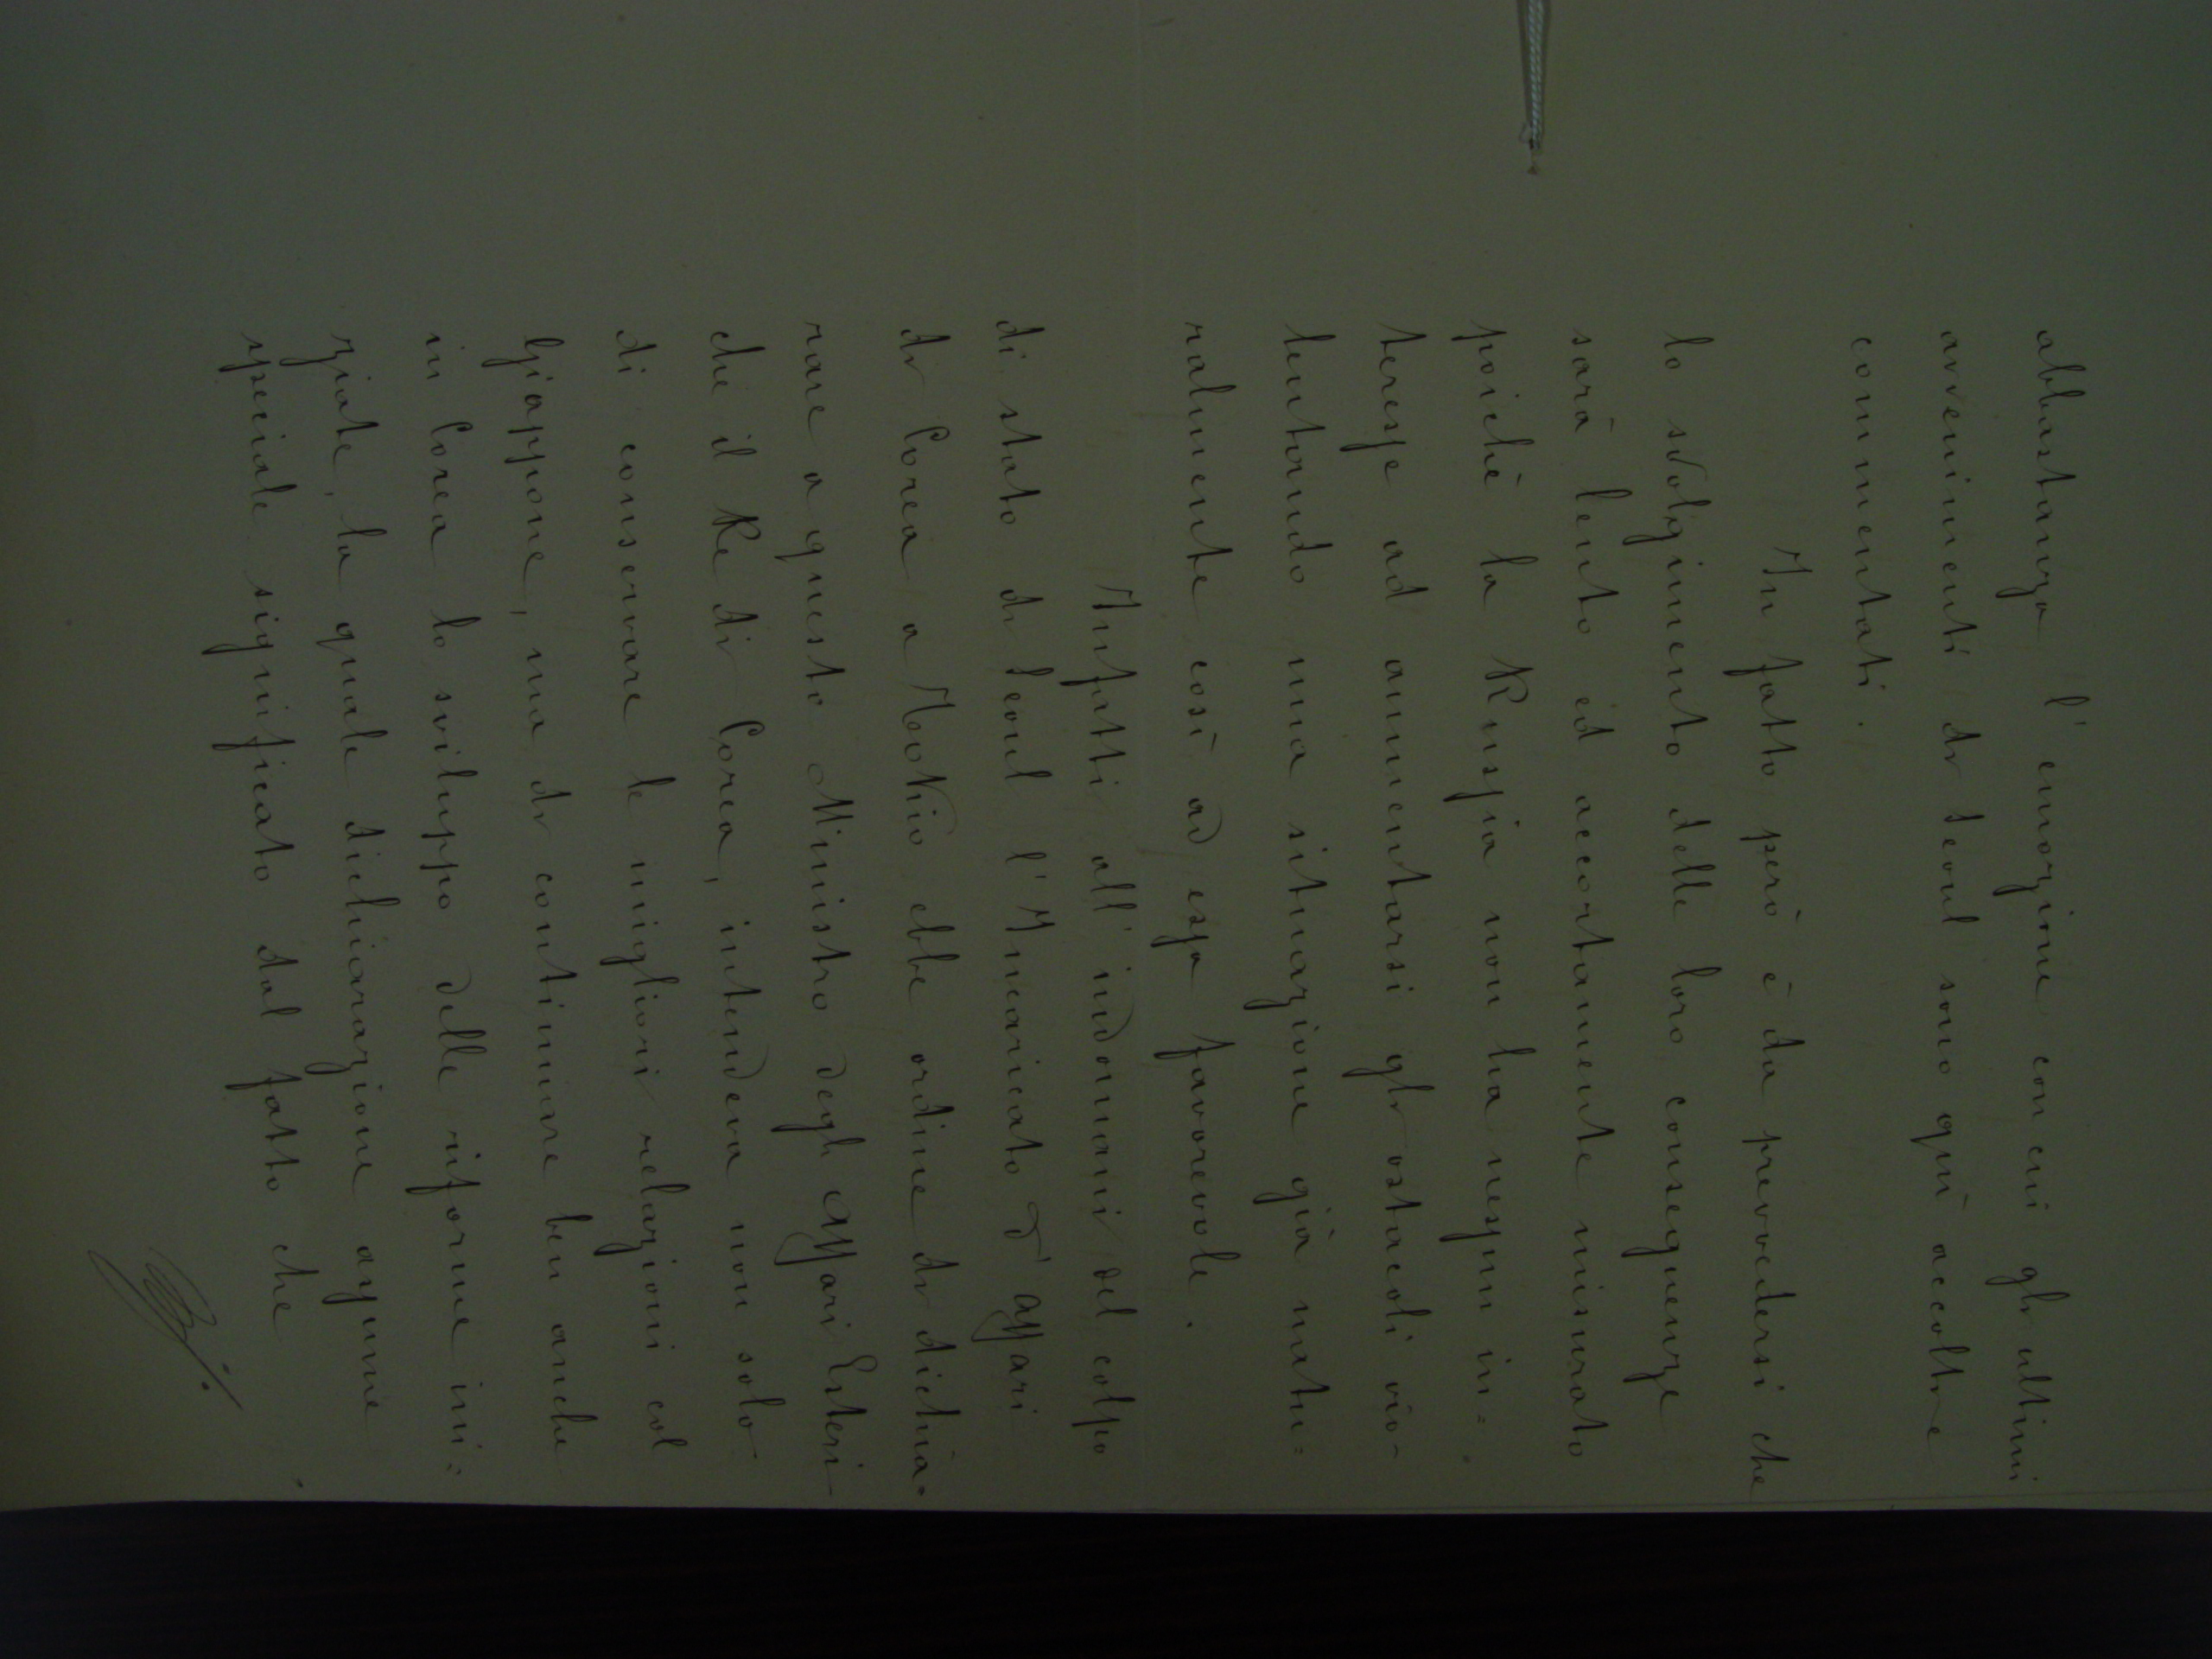 abbastanza l'emozione con cui gli ultimi
avvenimenti di Seoul sono quì accolti e
commentati.
In fatto però è da prevvedersi che
lo svolgimento delle loro conseguenze
sarà lento ed accortamente misurato
poichè la Russia non ha nessun in=
teresse ad aumentarsi gli ostacoli vio-
lentando una situazione già natu=
ralmente così ad essa favorevole.
Infatti all'indomani del colpo
di stato di Seoul l'Incaricato d'Affari
di Corea a Tokio ebbe ordine di dichia=
rare a questo Ministro degli Affari Esteri
che il Re di Corea, intendeva non solo
di conservare le migliori relazioni col
Giappone, ma di continuare ben anche
in Corea lo sviluppo delle riforme ini=
ziate, la quale dichiarazione assume
speciale significato dal fatto che